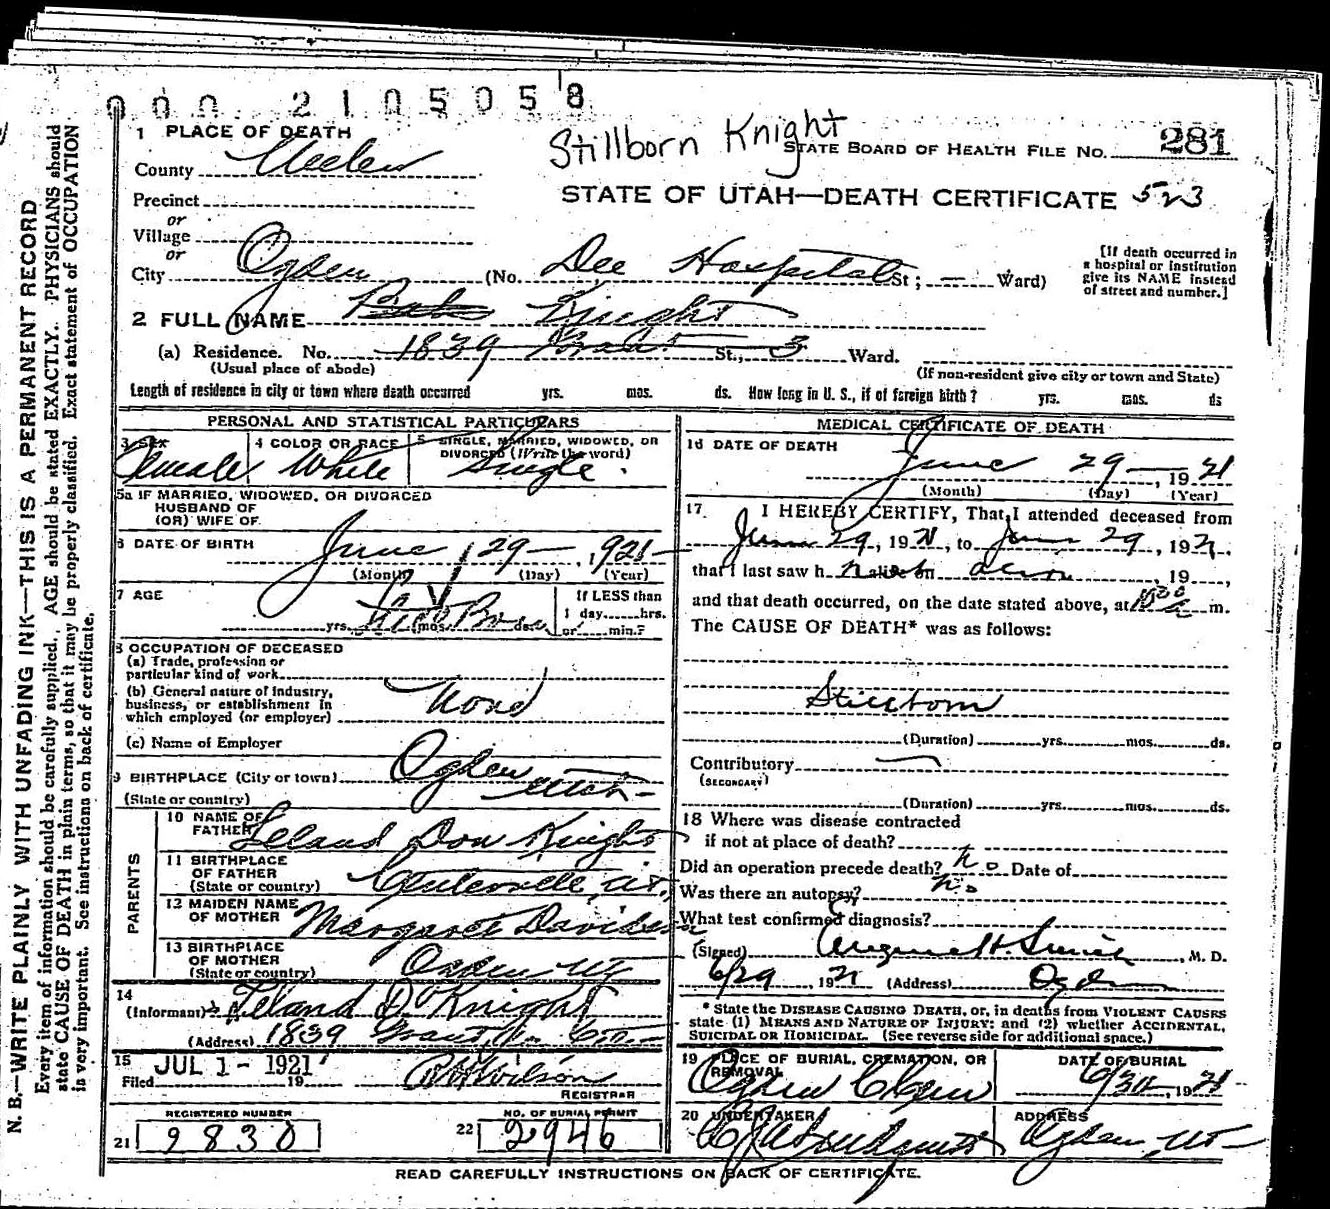 000 2105058
1 PLACE OF DEATH
Stillborn Knight
STATE BOARD OF HEALTH FILE NO. 281
County
STATE OF UTAH—DEATH CERTIFICATE 523
Precinct
or
Village
or
City Ogden (No. Dee Hospital St; — Ward)
[If death occurred in
a hospital or institution
give its NAME instead
of street and number.]
2 FULL NAME Knight
(a) Residence. No. 1839 Grant St., 3 Ward.
(Usual place of abode)
(If non-resident give city or town and State)
Length of residence in city or town where death occurred yrs. mos. ds. How long in U. S., if of foreign birth? yrs. mos. ds
PERSONAL AND STATISTICAL PARTICULARS
3 SEX
Female
4 COLOR OR RACE
White
5 SINGLE, MARRIED, WIDOWED, OR
DIVORCED (Write the word)
Single.
5a IF MARRIED, WIDOWED, OR DIVORCED
HUSBAND OF
(OR) WIFE OF
6 DATE OF BIRTH
June 29 — 1921
(Month) (Day) (Year)
7 AGE
yrs. mos. ds.
If LESS than
1 day hrs.
or min.?
8 OCCUPATION OF DECEASED
(a) Trade, profession or
particular kind of work
(b) General nature of industry,
business, or establishment in
which employed (or employer)
None
(c) Name of Employer
9 BIRTHPLACE (City or town) Ogden
(State or country) Utah
PARENTS
10 NAME OF
FATHER Leland Don Knight
11 BIRTHPLACE
OF FATHER
(State or country) Centerville, Ut.
12 MAIDEN NAME
OF MOTHER Margaret Davidson
13 BIRTHPLACE
OF MOTHER
(State or country) Ogden Ut
14
(Informant) Leland D Knight
(Address) 1839 Grant Av. City
15 JUL 1 - 1921
Filed 19 R W Wilson
REGISTRAR
REGISTERED NUMBER
21 9830
NO. OF BURIAL PERMIT
22 2946
MEDICAL CERTIFICATE OF DEATH
16 DATE OF DEATH
June 29 — , 19 21
(Month) (Day) (Year)
17 I HEREBY CERTIFY, That I attended deceased from
June 29, 1921, to June 29, 1921.
that I last saw h alive on , 19 ,
and that death occurred, on the date stated above, at m.
The CAUSE OF DEATH* was as follows:
Stillborn
(Duration) yrs. mos. ds.
Contributory
(SECONDARY)
(Duration) yrs. mos. ds.
18 Where was disease contracted
if not at place of death?
Did an operation precede death? No Date of
Was there an autopsy? No
What test confirmed diagnosis?
(Signed) Eugene H. Smith, M. D.
6/29, 1921 (Address) Ogden
* State the DISEASE CAUSING DEATH, or, in deaths from VIOLENT CAUSES
state (1) MEANS AND NATURE OF INJURY: and (2) whether ACCIDENTAL,
SUICIDAL OR HOMICIDAL. (See reverse side for additional space.)
19 PLACE OF BURIAL, CREMATION, OR
REMOVAL
Ogden
DATE OF BURIAL
6/30, 1921
20 UNDERTAKER
ADDRESS
Ogden, Ut
READ CAREFULLY INSTRUCTIONS ON BACK OF CERTIFICATE.
N. B.—WRITE PLAINLY WITH UNFADING INK—THIS IS A PERMANENT RECORD
Every item of information should be carefully supplied. AGE should be stated EXACTLY. PHYSICIANS should
state CAUSE OF DEATH in plain terms, so that it may be properly classified. Exact statement of OCCUPATION
is very important. See instructions on back of certificate.